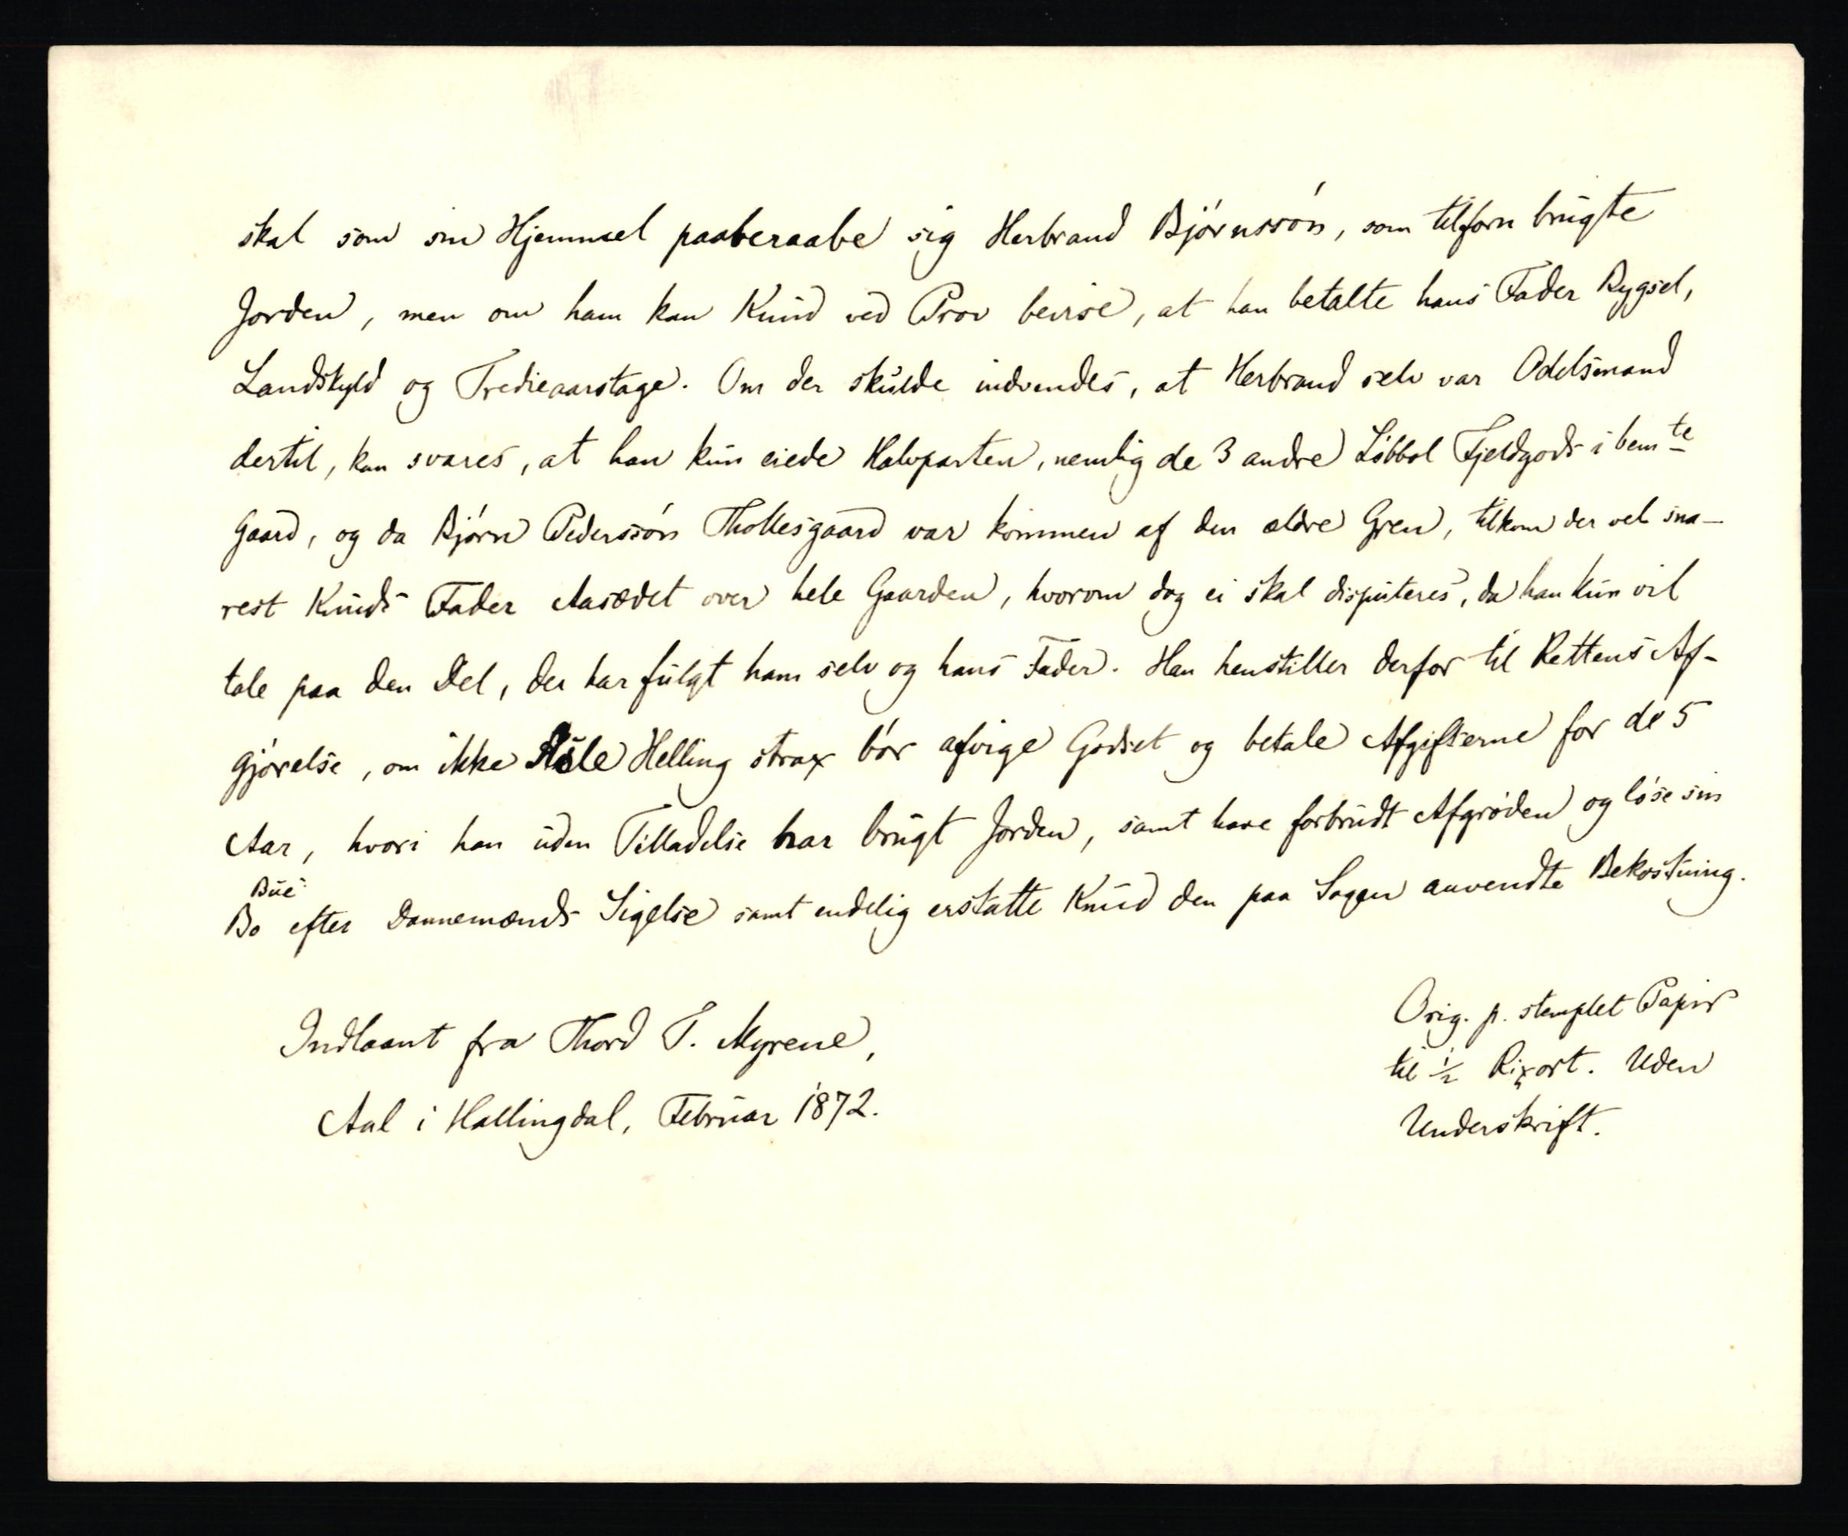 skal som sin Hjemmel paaberaabe sig Herbrand Bjørnssøn, som tilforn brugte
Jorden, men om ham kan Knud ved Prov bevise, at han betalte hans Fader Bygsel,
Landskyld og Tredieaarstage. Om der skulde indvendes, at Herbrand selv var Odelsmand
dertil, kan svares, at han kun eiede Halvparten, nemlig de 3 andre Løbbol Fjeldgods i bemte
Gaard, og da Bjørn Pederssøn Thollesgaard var kommen af den ældre Gren, tilkom der vel sna-
rest Knuds Fader Aasædet over hele Gaarden, hvorom dog ei skal disputeres, da han kun vil
tale paa den Del, der har fulgt ham selv og hans Fader. Han henstiller derfor til Rettens Af-
gjørelse, om ikke Asle Helling strax bør afvige Godset og betale Afgifterne for de 5
Aar, hvori han uden Tilladelse har brugt Jorden, samt have forbrudt Afgrøden og løse sin
Bue
Bo efter Dannemænds Sigelse samt endelig erstatte Knud den paa Sagen anvendte Bekostning.
Indlaant fra Thord T. Myrene,
Aal i Hallingdal, Februar 1872.
Orig. p. stemplet Papir
til 1/2 Rixort. Uden
Underskrift.